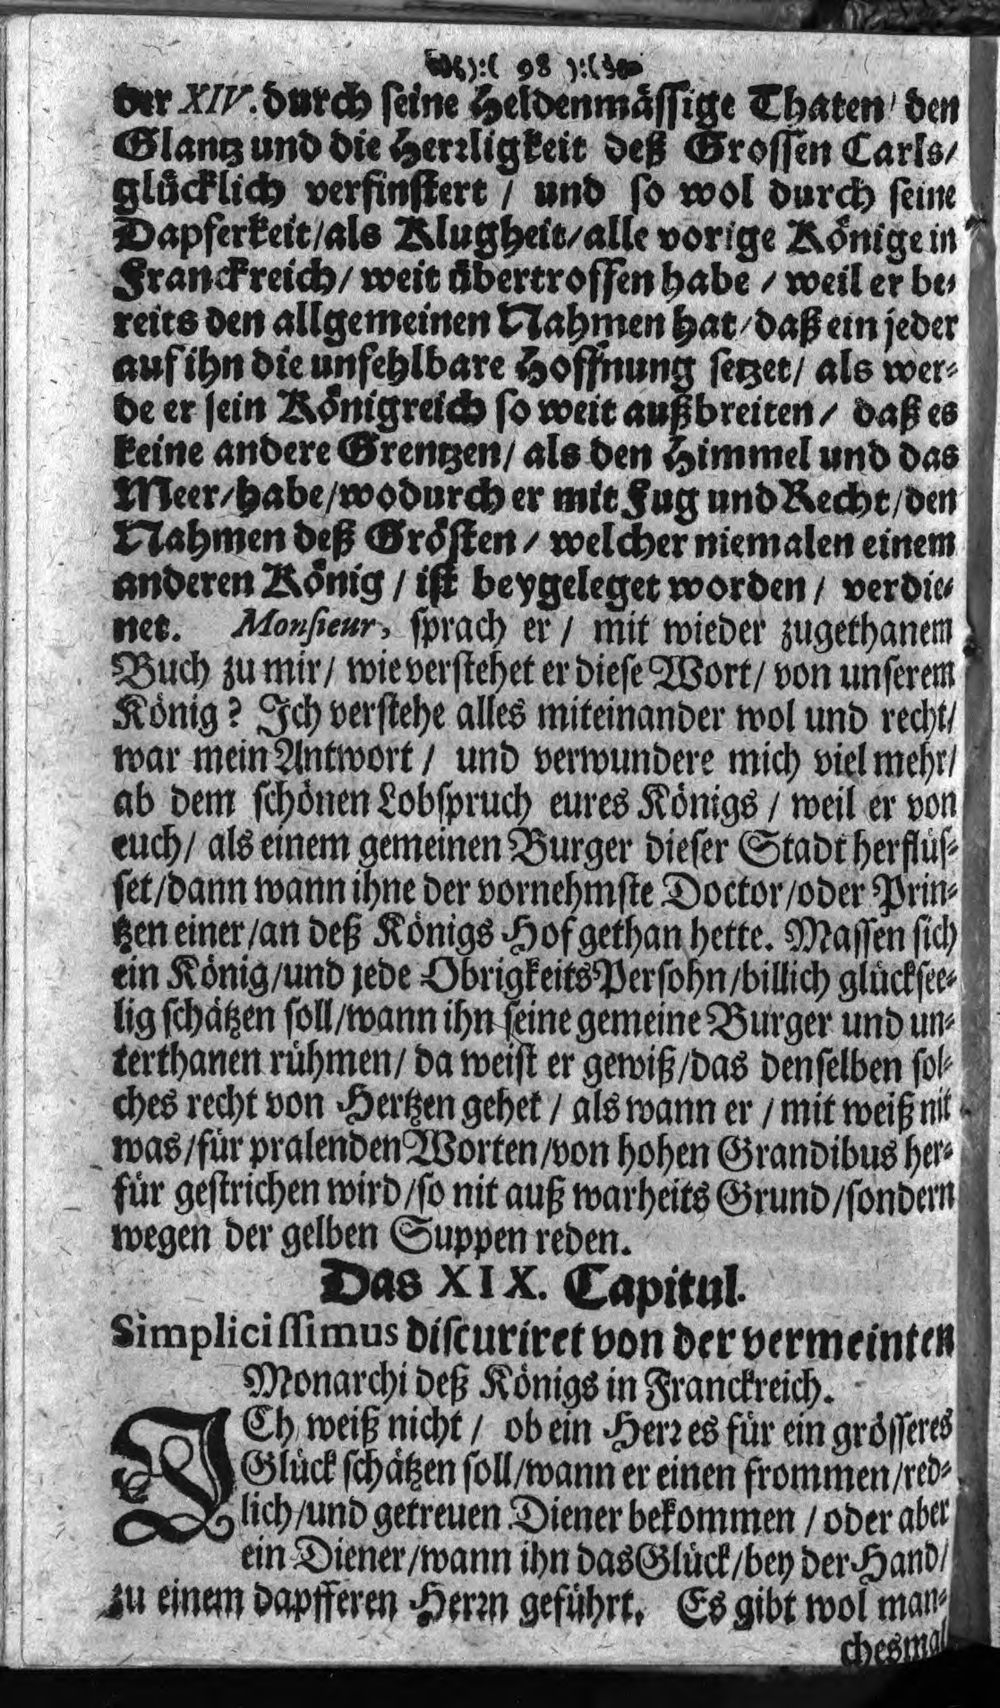 ):( 98 ):(
der XIV. durch seine Heldenmässige Thaten / den
Glantz und die Herrligkeit deß Grossen Carls /
glücklich verfinstert / und so wol durch seine
Dapferkeit / als Klugheit / alle vorige Könige in
Franckreich / weit übertroffen habe / weil er be-
reits den allgemeinen Nahmen hat / daß ein jeder
auf ihn die unfehlbare Hoffnung setzet / als wer-
de er sein Königreich so weit außbreiten / daß es
keine andere Grentzen / als den Himmel und das
Meer / habe / wodurch er mit Fug und Recht / den
Nahmen deß Grösten / welcher niemalen einem
anderen König / ist beygeleget worden / verdie-
net. Monsieur, sprach er / mit wieder zugethanem
Buch zu mir / wie verstehet er diese Wort / von unserem
König? Ich verstehe alles miteinander wol und recht /
war mein Antwort / und verwundere mich viel mehr /
ab dem schönen Lobspruch eures Königs / weil er von
euch / als einem gemeinen Burger dieser Stadt herflüs-
set / dann wann ihne der vornehmste Doctor / oder Prin-
tzen einer / an deß Königs Hof gethan hette. Massen sich
ein König / und jede ObrigkeitsPersohn / billich glücksee-
lig schätzen soll / wann ihn seine gemeine Burger und un-
terthanen rühmen / da weist er gewiß / das denselben sol-
ches recht von Hertzen gehet / als wann er / mit weiß nit
was / für pralenden Worten / von hohen Grandibus her-
für gestrichen wird / so nit auß warheits Grund / sondern
wegen der gelben Suppen reden.
Das XIX. Capitul.
Simplicissimus discuriret von der vermeinten
Monarchi deß Königs in Franckreich.
ICh weiß nicht / ob ein Herr es für ein grösseres
Glück schätzen soll / wann er einen frommen / red-
lich / und getreuen Diener bekommen / oder aber
ein Diener / wann ihn das Glück / bey der Hand /
zu einem dapfferen Herrn geführt. Es gibt wol man-
chesmal